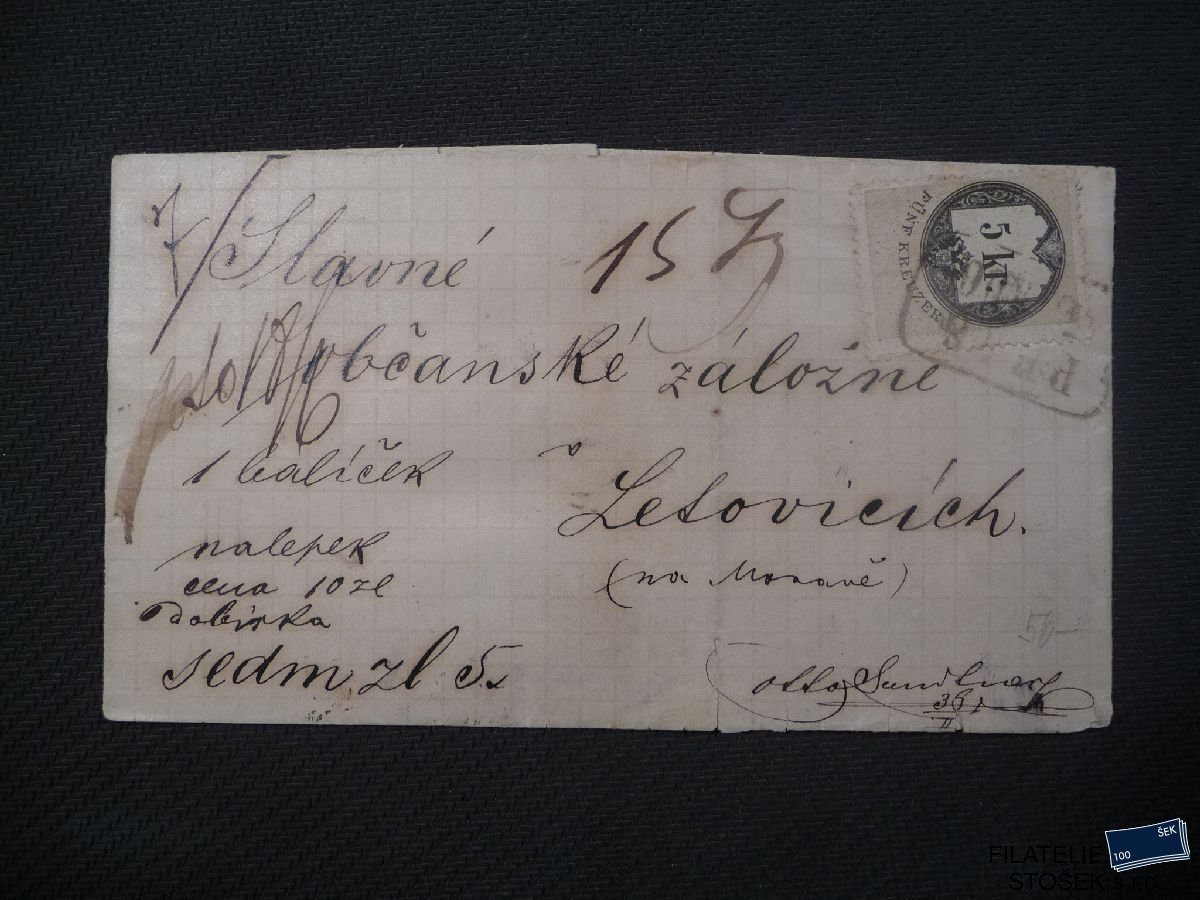 Slavné
občanské záložně
v
Letovicích.
(na Moravě)
1 balíček
nalepek
cena 10 zl
Dobírka
sedm zl 5
15
Otto
36
II
50-
5 kr.
FÜNF KREUZER
100 ŠEK
FILATELIE
STOŠEK s.r.o.